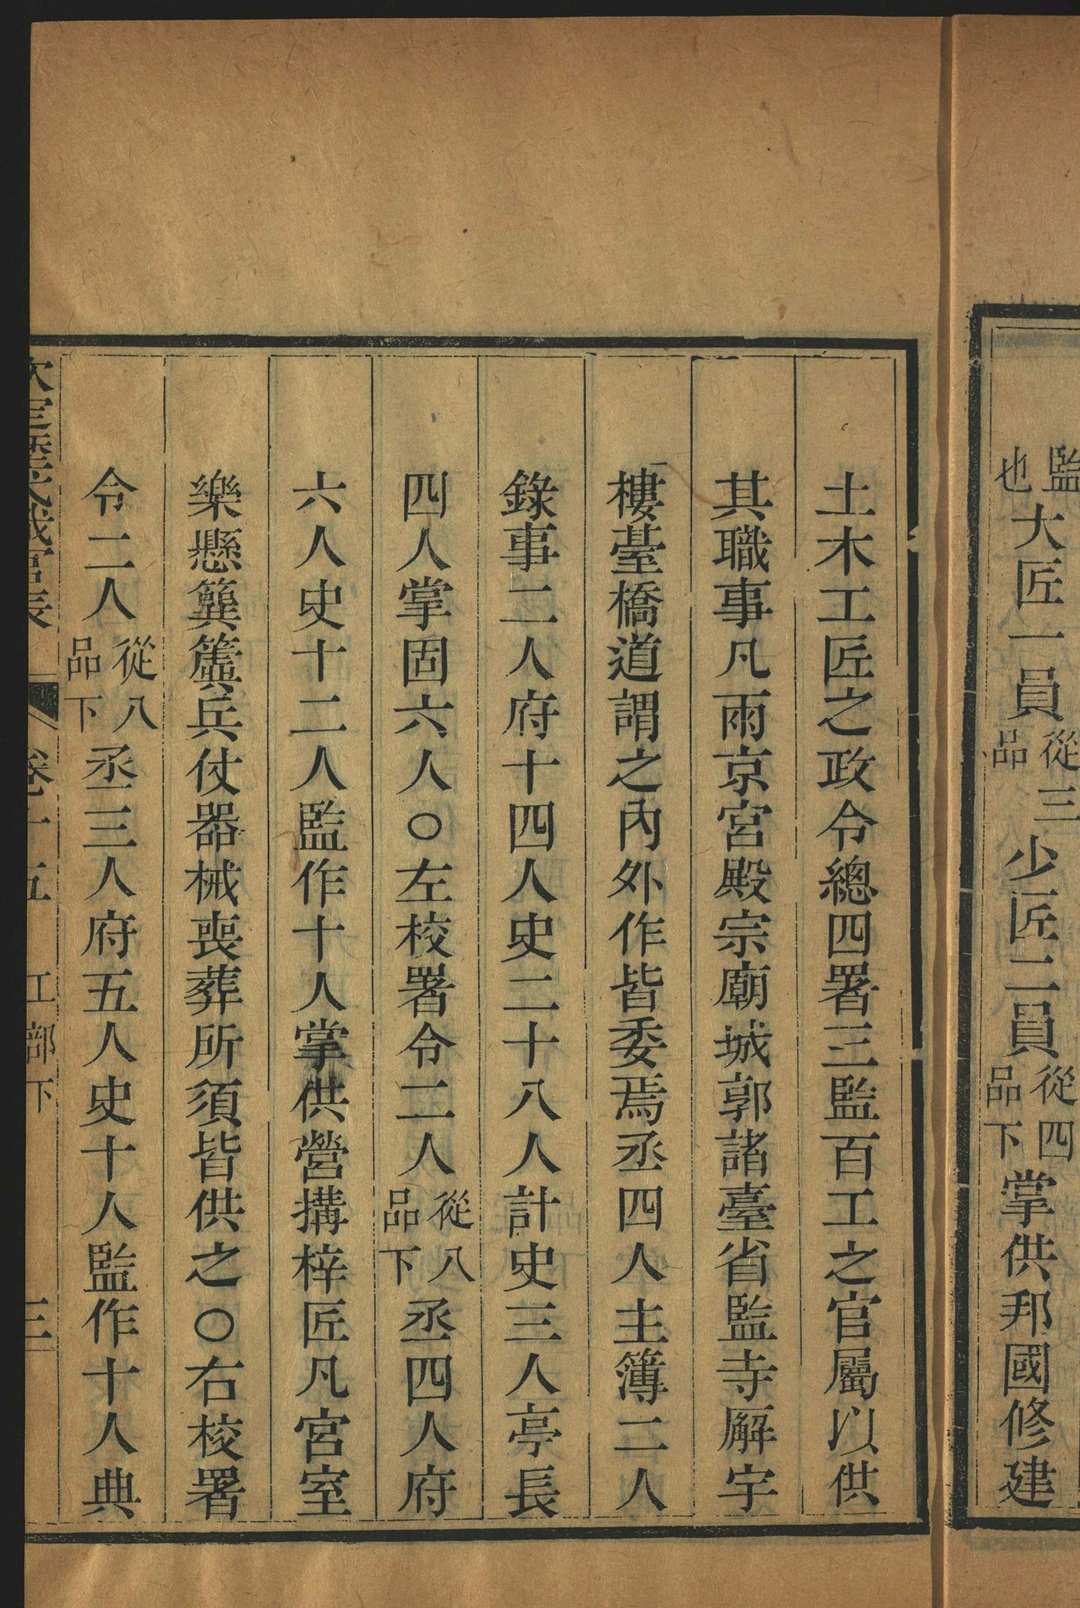 監
也大匠一員從三品少匠二員從四品下掌供邦國修建
土木工匠之政令總四署三監百工之官屬以供
其職事凡兩京宮殿宗廟城郭諸臺省監寺廨宇
樓臺橋道謂之內外作皆委焉丞四人主簿二人
錄事二人府十四人史二十八人計史三人亭長
四人掌固六人○左校署令二人從八品下丞四人府
六人史十二人監作十人掌供營搆梓匠凡宮室
樂懸簨簴兵仗器械喪葬所須皆供之○右校署
令二人從八品下丞三人府五人史十人監作十人典
欽定歷代職官表 卷十五 工部下 三